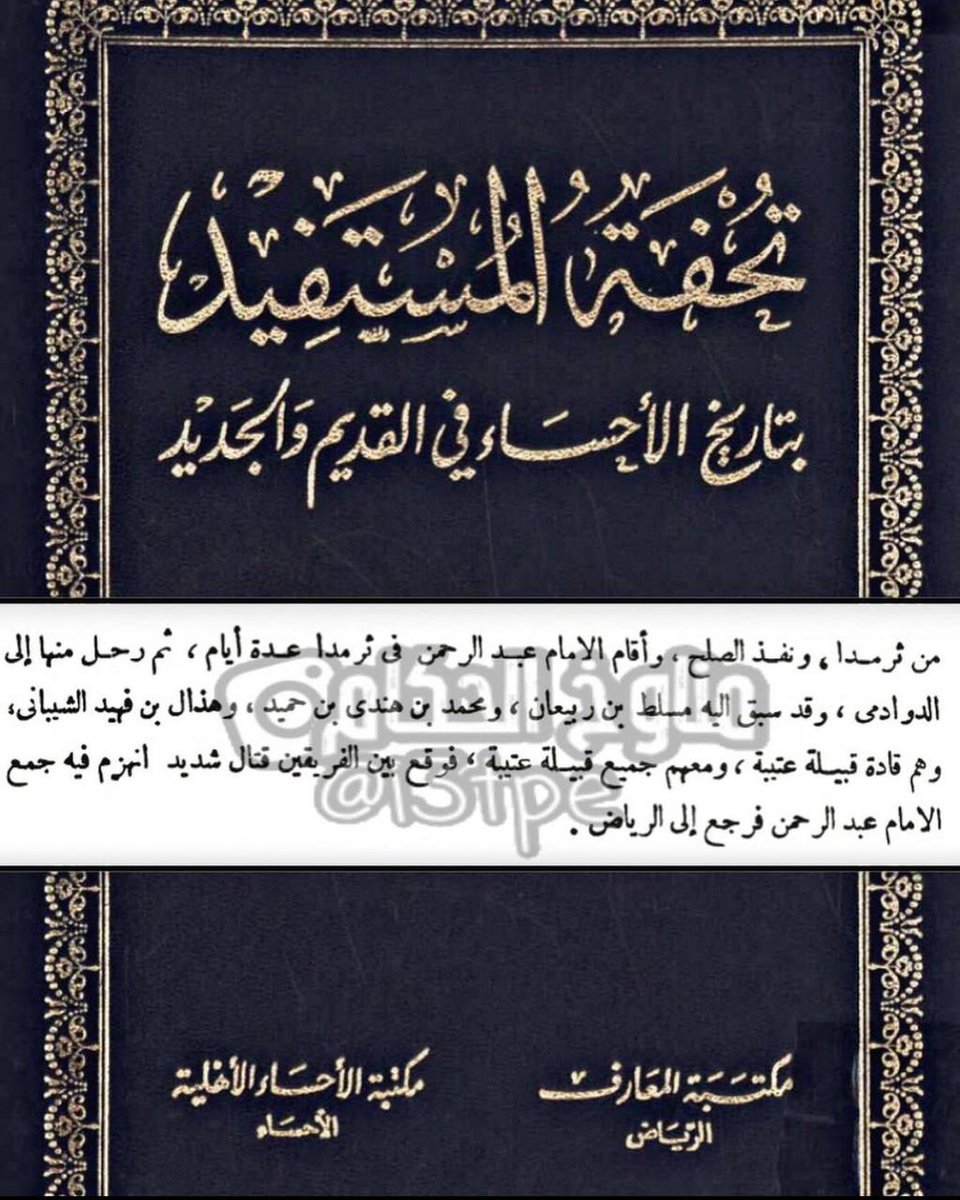 تُحْفَةُ المُسْتَفِيْد
بتاريخ الأحساء في القديم وَالجَديد
من ثرمدا، ونفذ الصلح، وأقام الامام عبد الرحمن فى ثرمدا عدة أيام، ثم رحل منها إلى
الدوادمى، وقد سبق اليه مسلط بن ربيعان، ومحمد بن هندى بن حميد، وهذال بن فهيد الشيبانى،
وهم قادة قبيلة عتيبة، ومعهم جميع قبيلة عتيبة، فوقع بين الفريقين قتال شديد انهزم فيه جمع
الامام عبد الرحمن فرجع إلى الرياض.
@13tpe
مكتبة المعارف
الرياض
مكتبة الأحساء الأهلية
الأحساء